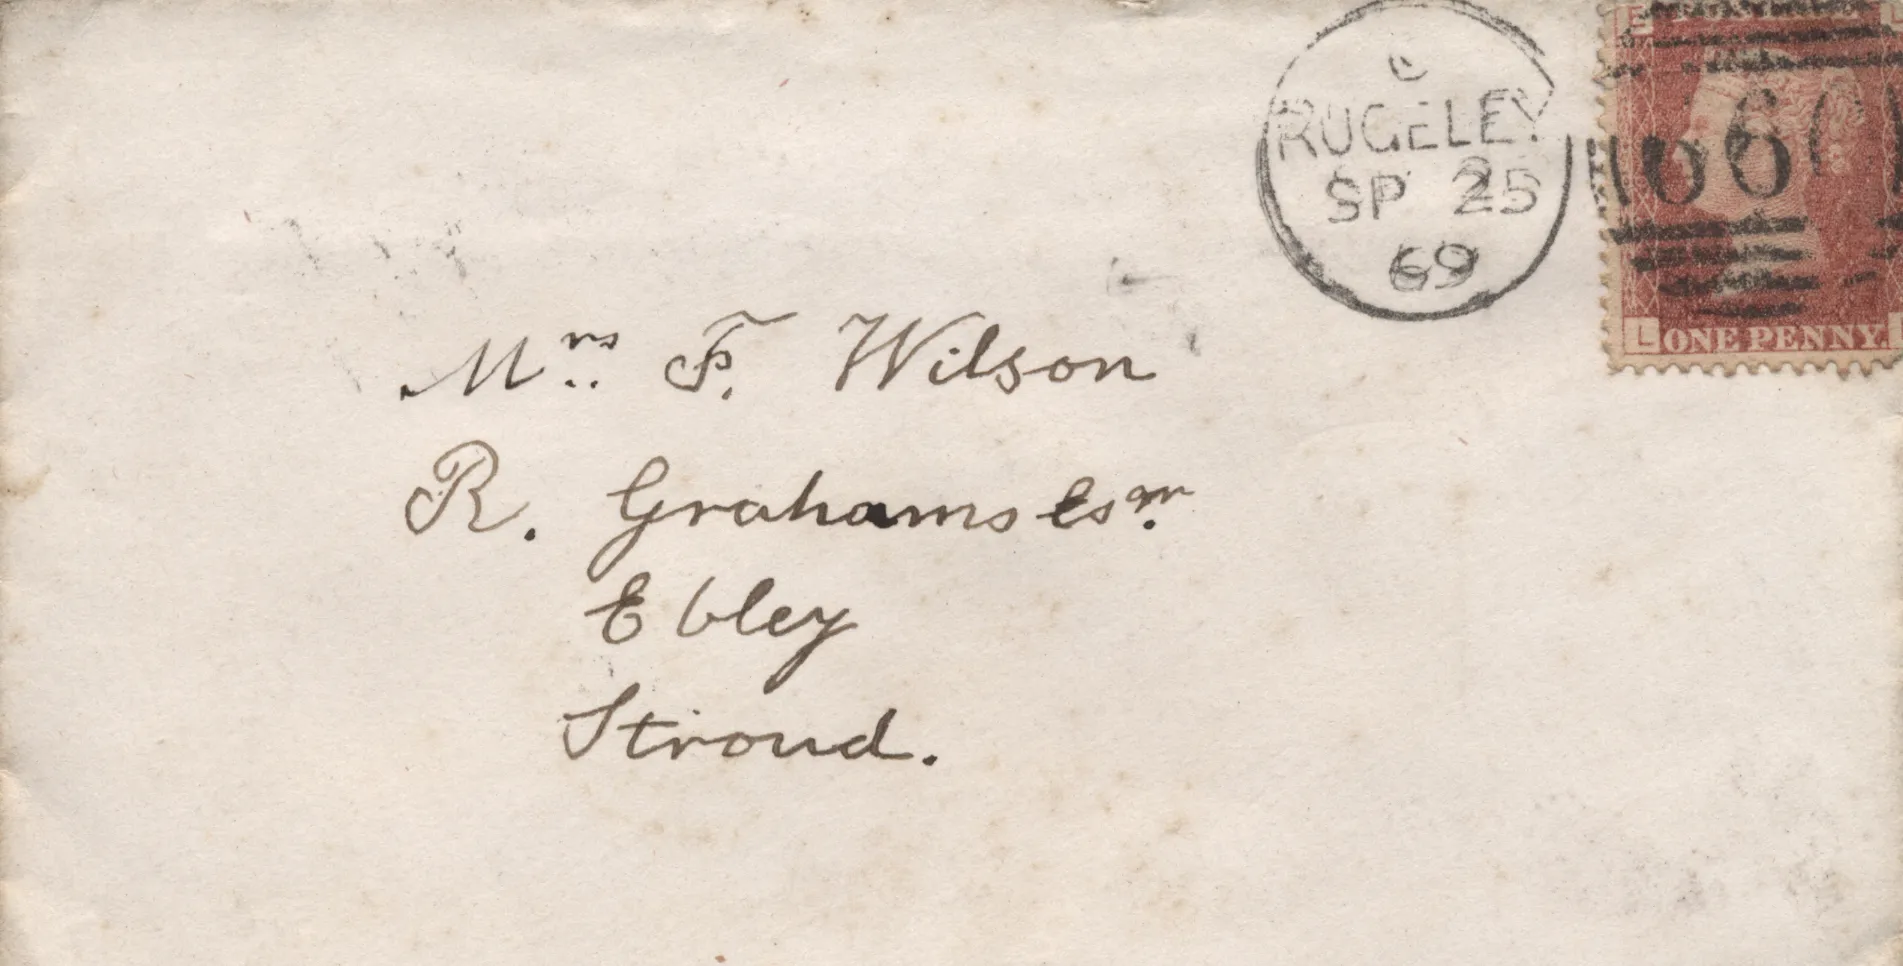 C
RUGELEY
SP 25
69
E
660
L ONE PENNY.
Mrs. F. Wilson
R. Grahams Esqr.
Ebley
Stroud.